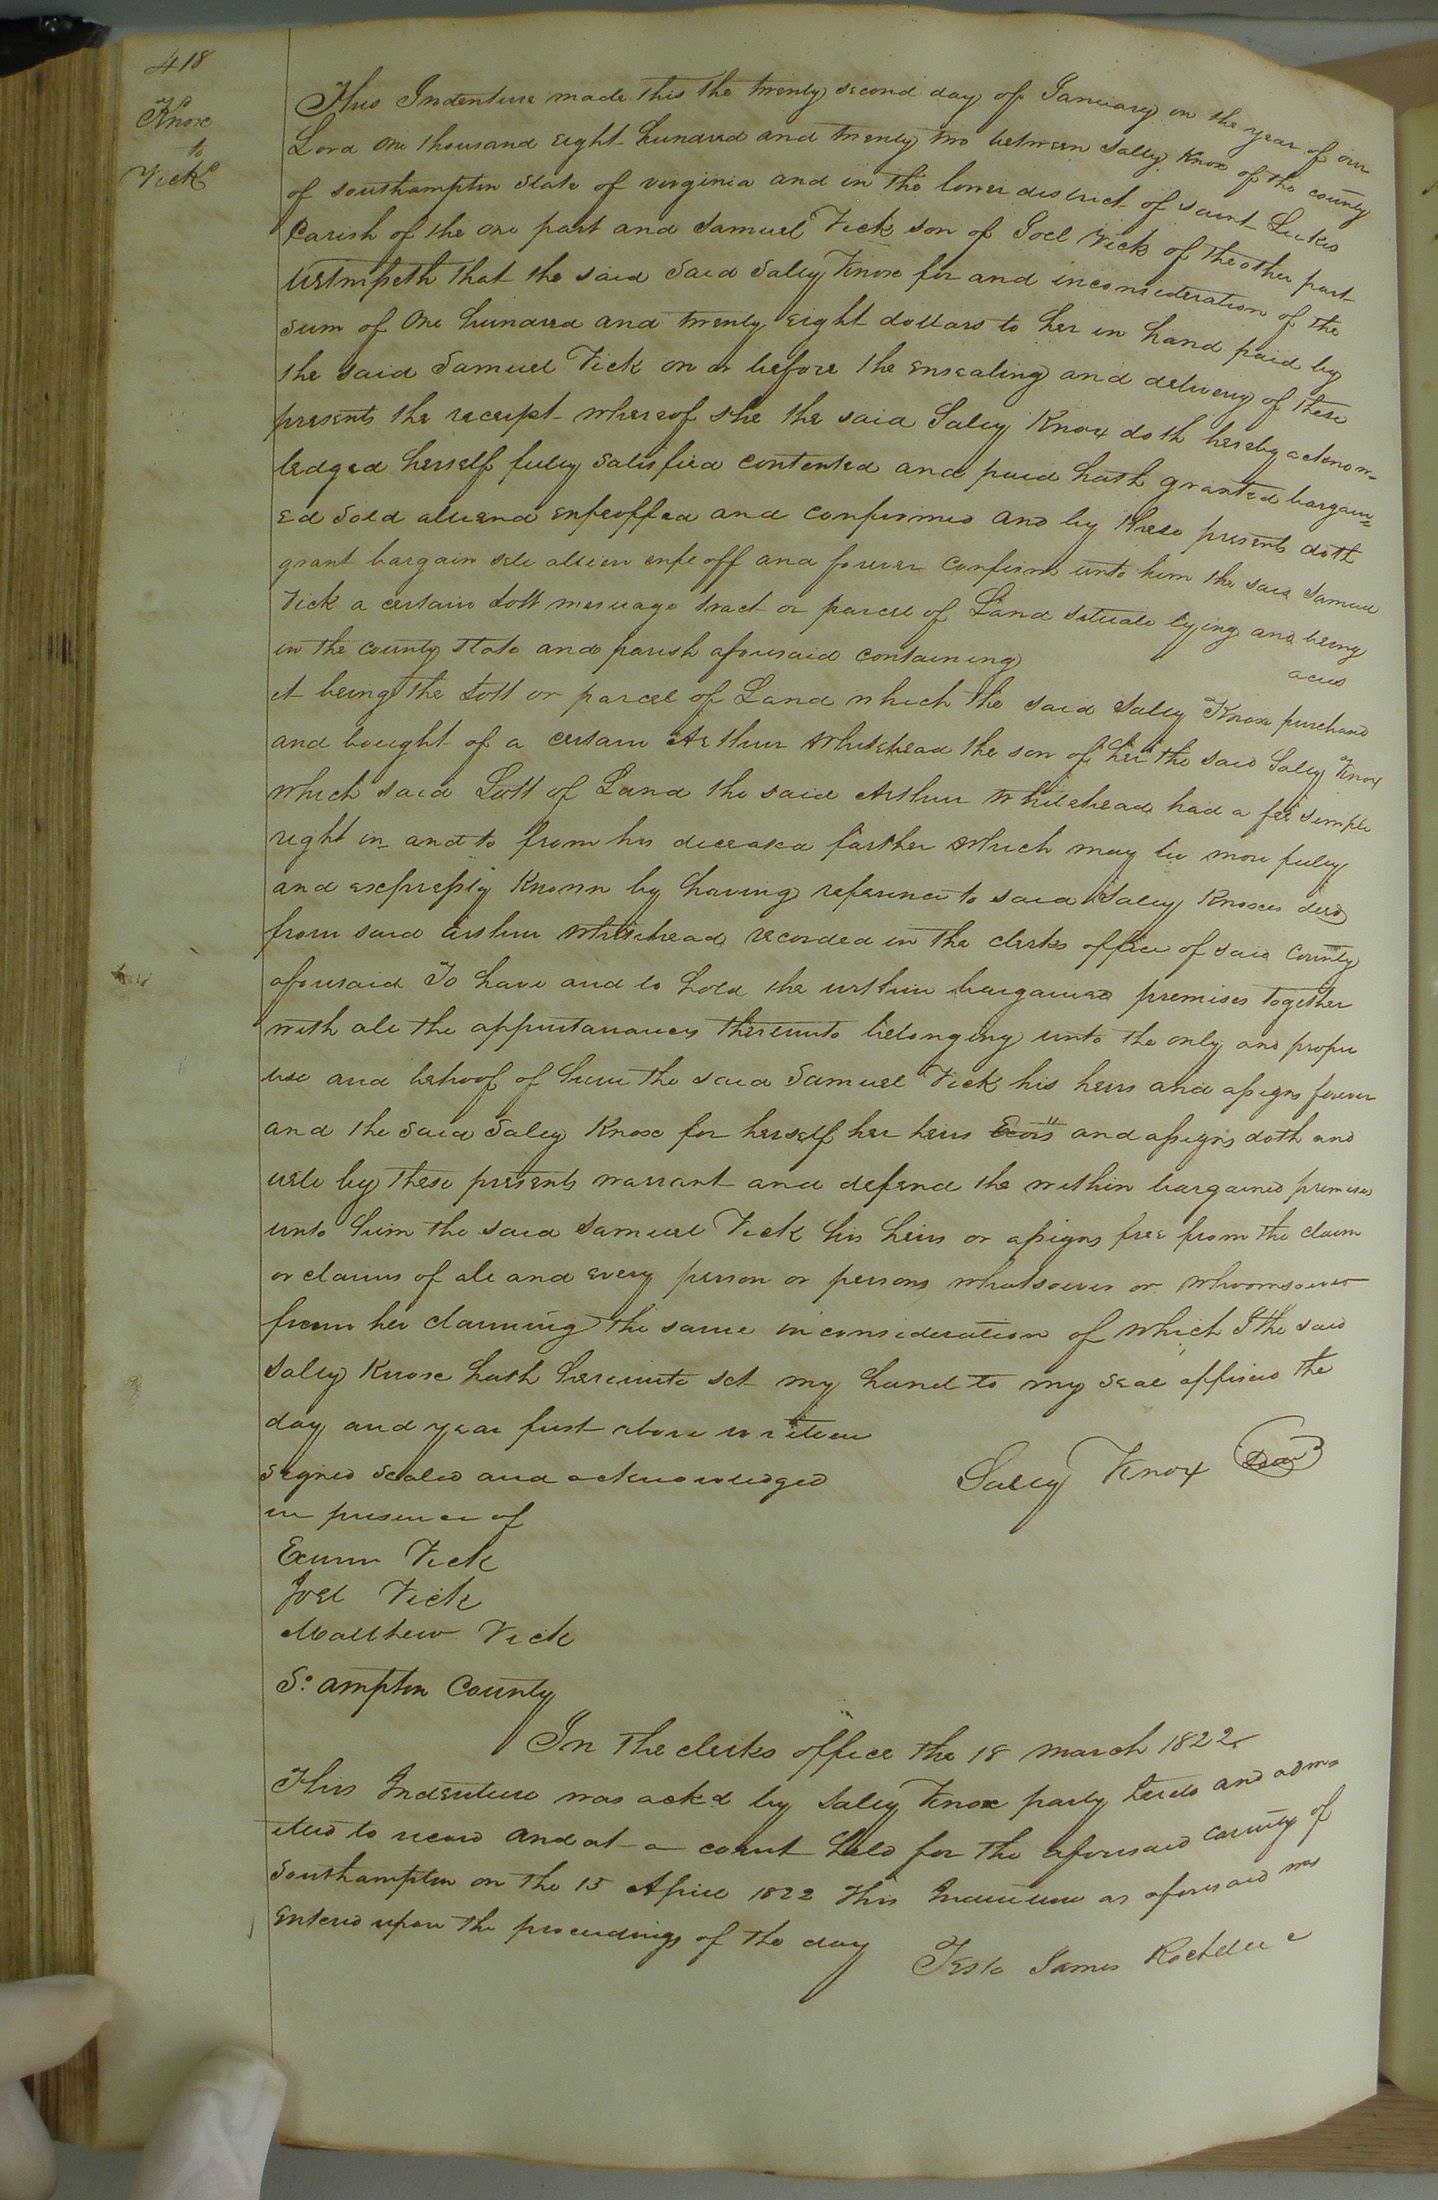 418
Knox
to
Vick
This Indenture made this the twenty second day of January in the year of our
Lord one thousand eight hundred and twenty two between Sally Knox of the county
of Southampton State of virginia and in the lower district of saint Lukes
Parish of the one part and Samuel Vick son of Joel Vick of the other part
Witnesseth that the said Said Sally Knox for and inconsideration of the
sum of One hundred and twenty eight dollars to her in hand paid by
the said Samuel Vick on or before the ensealing and delivery of these
presents the receipt whereof she the said Sally Knox doth hereby acknow=
ledged herself fully satisfied contented and paid hath granted bargain=
ed Sold aliend enfeoffed and confirmed and by these presents doth
grant bargain sell alien enfeoff and forever confirm unto him the said Samuel
Vick a certain Lott messuage tract or parcel of Land situate lying and being
in the county State and parish aforesaid containing acres
it being the Lott or parcel of Land which the said Sally Knox purchased
and bought of a certain Arthur Whitehead the son of her the said Sally Knox
which said Lott of Land the said Arthur Whitehead had a fee simple
right in and to from his deceased farther which may be more fully
and expressly known by having reference to said Sally Knoxes deed
from said Arthur Whitehead recorded in the clerks office of said county
aforesaid To have and to hold the within bargained premises together
with all the appurtanances thereunto belonging unto the only and proper
use and behoof of him the said Samuel Vick his heirs and assigns forever
and the said Sally Knox for herself her heirs Exors and assigns doth and
will by these presents warrant and defend the within bargained premises
unto him the said Samuel Vick his heirs or assigns free from the claim
or claims of all and every person or persons whatsoever or whoomsoever
from her claiming the same in consideration of which I the said
Sally Knox hath hereunto set my hand to my seal affixed the
day and year first above written
signed sealed and acknowledged Sally Knox Seal
in presence of
Exum Vick
Joel Vick
Matthew Vick
So: ampton County
In the clerks office the 18 march 1822
This Indenture was ackd by Sally Knox party hereto and adm=
itted to record and at a court held for the aforesaid county of
Southampton on the 15 April 1822 This Indenture as aforesaid was
entered upon the proceedings of the day
Teste James Rochelle c